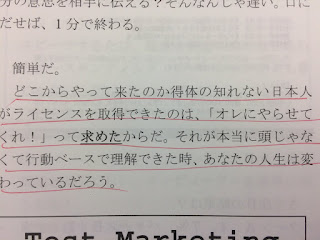 分の意思を相手に伝える？そんなんじゃ遅い。口に
だせば、１分で終わる。
簡単だ。
どこからやって来たのか得体の知れない日本人
がライセンスを取得できたのは、「オレにやらせて
くれ！」って求めたからだ。それが本当に頭じゃな
くて行動ベースで理解できた時、あなたの人生は変
わっているだろう。
Test Marketing